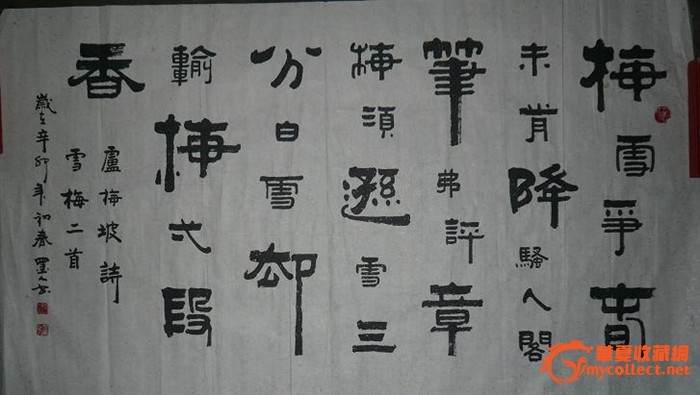 梅雪爭春
未肯降騷人閣
筆弗評章
梅須遜雪三
分白雪却
輸梅弌段
香
盧梅坡詩
雪梅二首
歲在辛卯年初春
華夏收藏網
mycollect.net